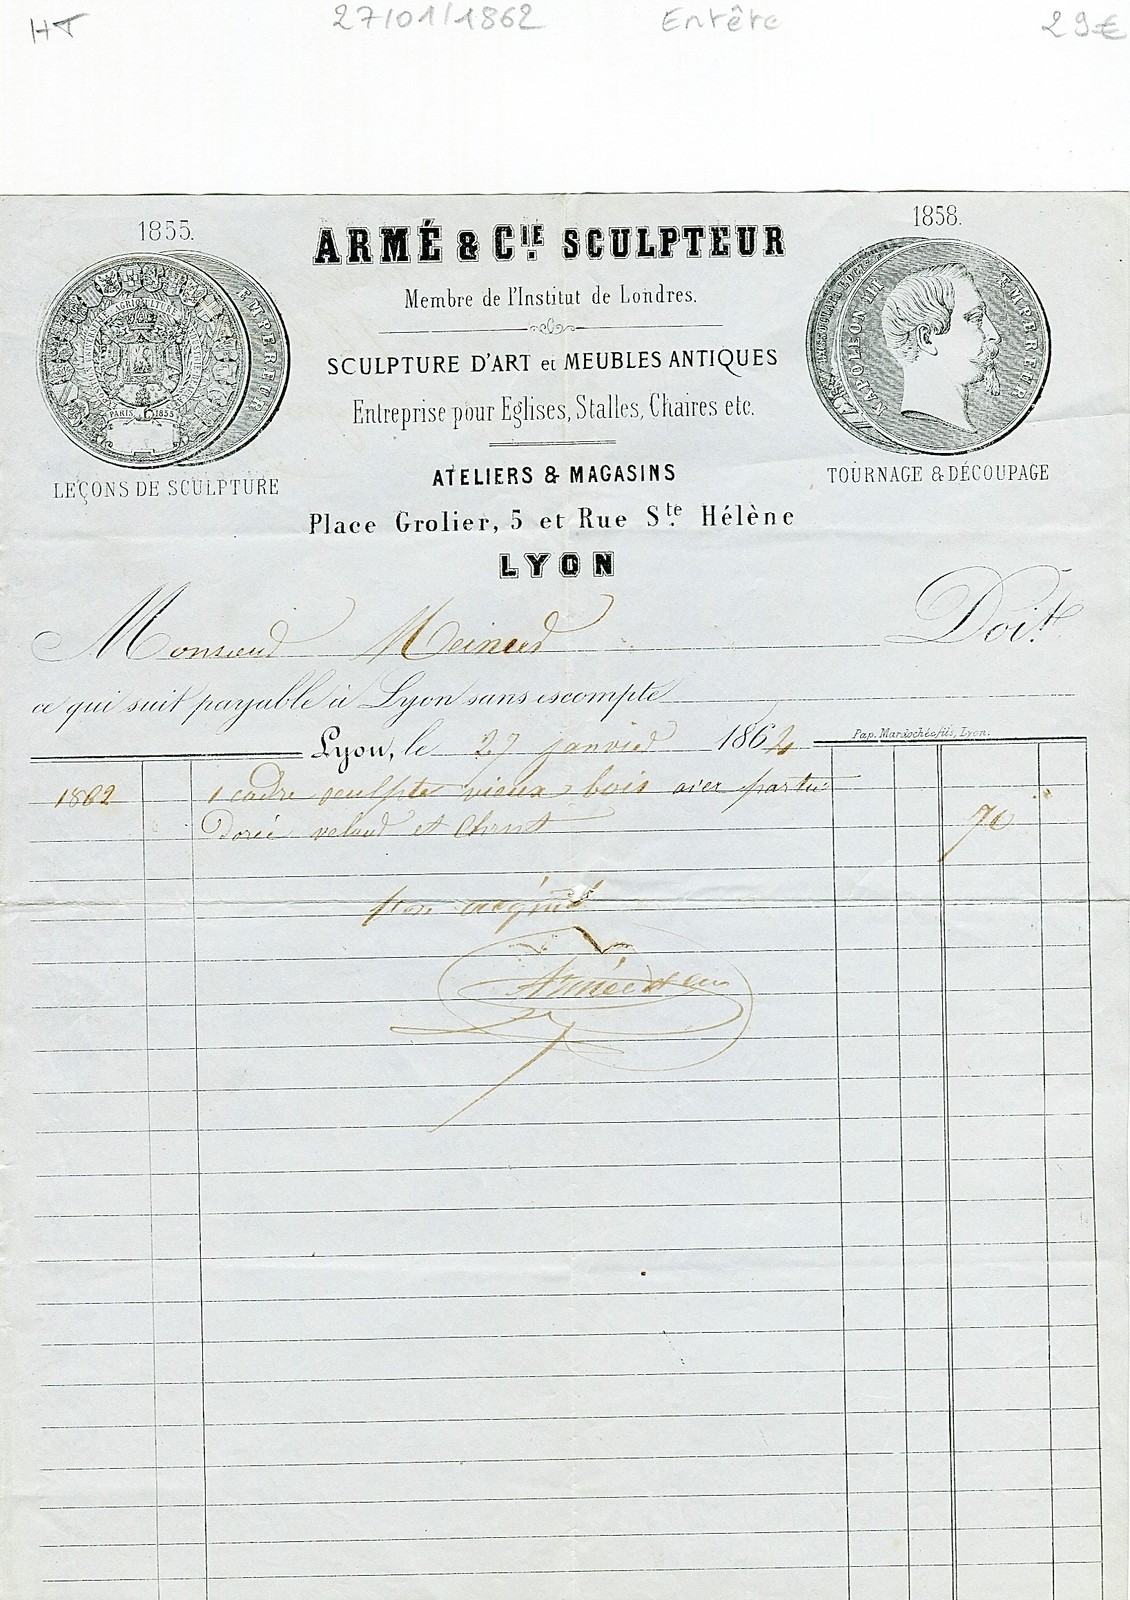 HT 27/01/1862 Entête 29€
1855.
1858.
ARMÉ & CIE. SCULPTEUR
Membre de l'Institut de Londres.
SCULPTURE D'ART et MEUBLES ANTIQUES
Entreprise pour Eglises, Stalles, Chaires etc.
AGRICULTURE
PARIS 1855
EMPEREUR
NAPOLEON III EMPEREUR
LEÇONS DE SCULPTURE
TOURNAGE & DÉCOUPAGE
ATELIERS & MAGASINS
Place Grolier, 5 et Rue Ste. Hélène
LYON
Monsieur Doit
ce qui suit payable à Lyon sans escompte
Pap. Marsoché & fils, Lyon.
Lyon, le 27 janvier 1862
1862 1 cadre sculpté vieux bois avec partie
Dorée velours et Christ 70
pour acquit
Armé et Cie